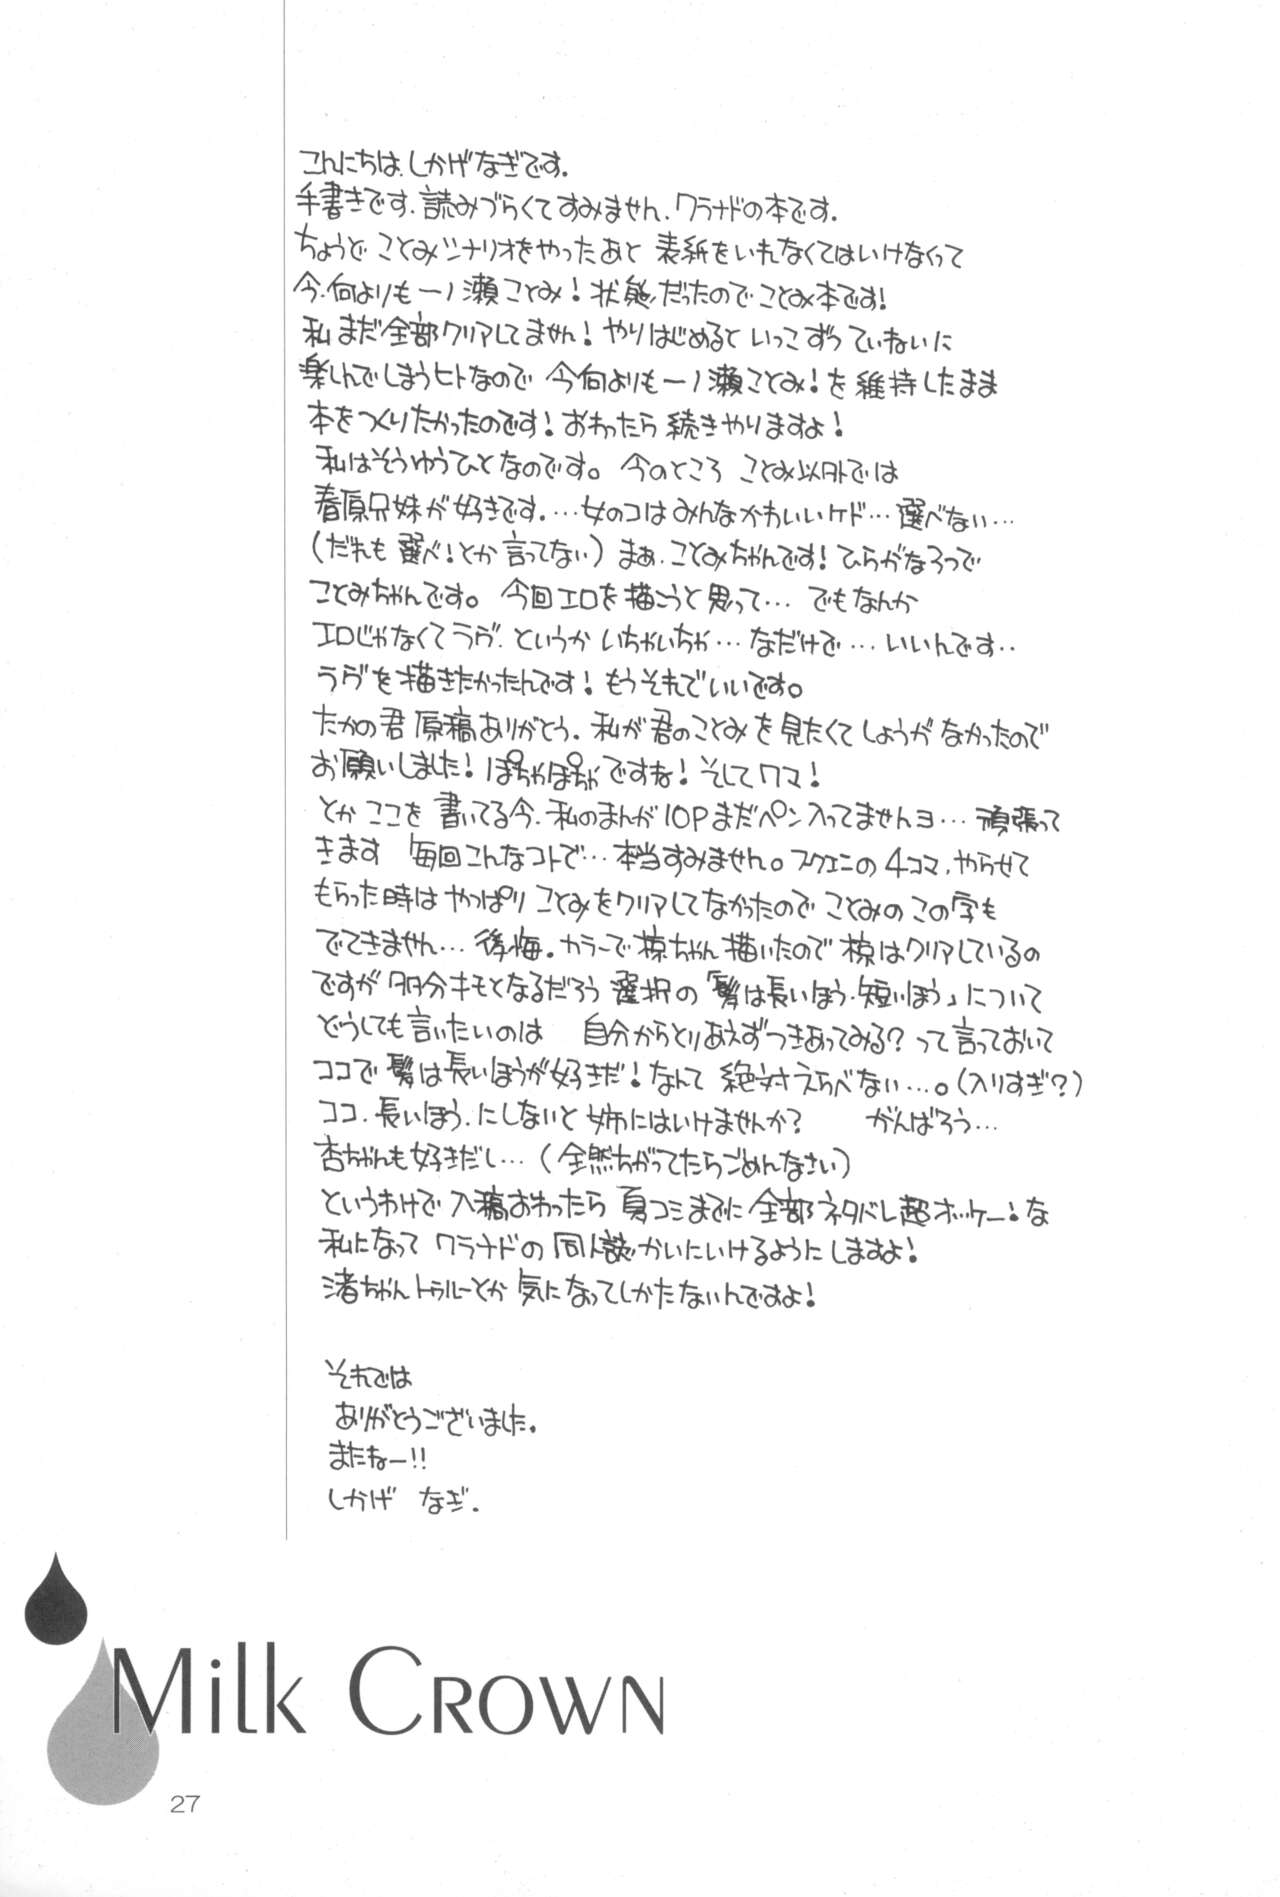 こんにちは、しかげなぎです.
手書きです.読みづらくてすみません.クラナドの本です.
ちょうど ことみシナリオをやったあと 表紙をいれなくてはいけなくって
今.何よりも一ノ瀬ことみ!状態だったので ことみ本です!
私 まだ全部クリアしてません! やりはじめると いっこずつ ていねいに
楽しんでしまうヒトなので 今何よりも一ノ瀬ことみ!を維持したまま
本をつくりたかったのです! おわったら続きやりますよ!
私はそうゆうひとなのです。 今のところ ことみ以外では
春原兄妹が好きです.…女のコはみんなかわいいケド…選べない…
(だれも 選べ!とか言ってない) まぁ.ことみちゃんです! ひらがな3つで
ことみちゃんです。 今回エロを描こうと思って… でもなんか
エロじゃなくてラヴ.というか いちゃいちゃ…なだけで…いいんです‥
ラヴを描きたかったんです! もうそれでいいです。
たかの君 原稿ありがとう. 私が君のことみを見たくてしょうがなかったので
お願いしました! ぽちゃぽちゃですね! そしてクマ!
とか ここを 書いてる今.私のまんが10Pまだペン入ってませんヨ… 頑張って
きます 毎回こんなコトで… 本当すみません。スクエニの4コマ.やらせて
もらった時は やっぱり ことみをクリアしてなかったので ことみの この字も
でてきません… 後悔. カラーで椋ちゃん描いたので 椋はクリアしているの
ですが 多分キモとなるだろう 選択の「髪は長いほう.短いほう」について
どうしても言いたいのは 自分からとりあえずつきあってみる?って言っておいて
ココで髪は長いほうが好きだ!なんて 絶対えらべない…。(入りすぎ?)
ココ.長いほう.にしないと 姉にはいけませんか? がんばろう…
杏ちゃんも好きだし… (全然ちがってたらごめんなさい)
というわけで 入稿おわったら 夏コミまでに 全部ネタバレ超オッケー!な
私になって クラナドの 同人誌かいにいけるようにしますよ!
渚ちゃん トゥルーとか 気になってしかたないんですよ!
それでは
ありがとうございました.
またねー!!
しかげ なぎ.
Milk Crown
27